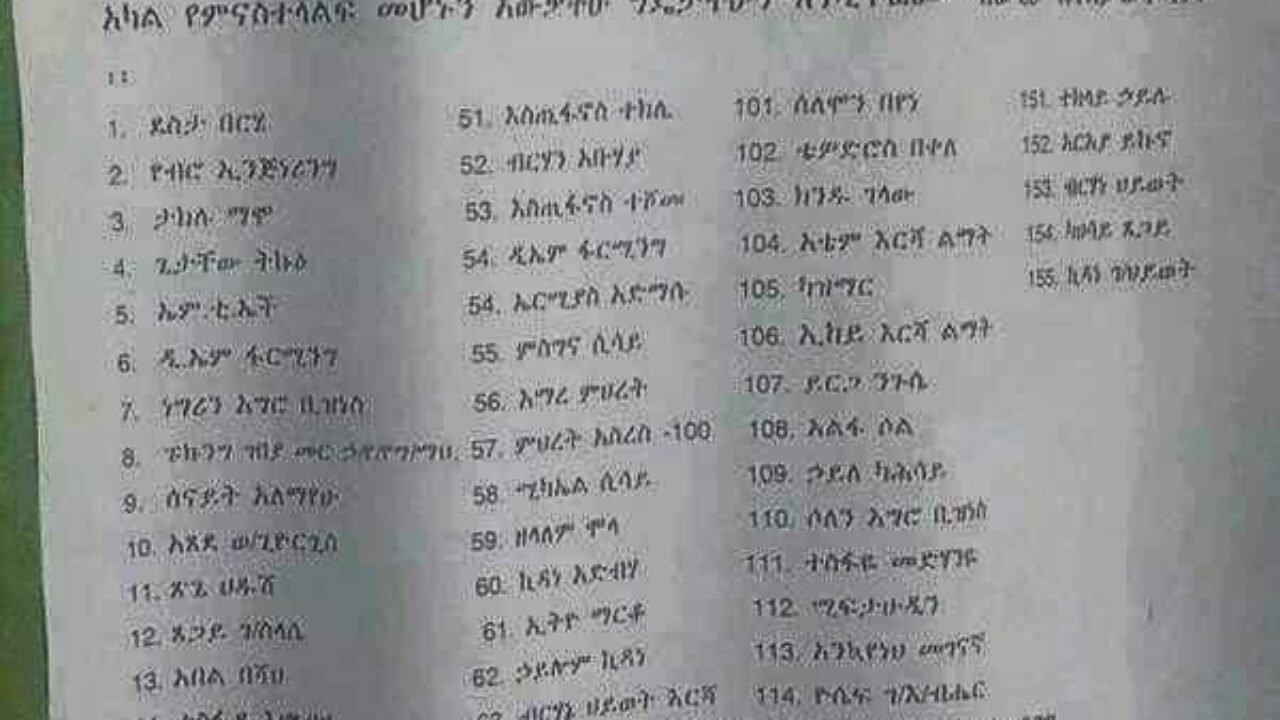 አካል የምናስተላልፍ መሆኑን አውቃችሁ
11
1. ደስታ በርሄ
2. የብሮ ኢንጅነሪንግ
3. ታከለ ማሞ
4. ጌታቸው ትኩዕ
5. ኤም.ቲ.ኤች
6. ዲ.ኤም ፋርሚንግ
7. ነግሪን አግሮ ቢዝነስ
8.
9. ሰናይት አለማየሁ
10. አጸደ ወ/ጊዮርጊስ
11. ጽጌ ሀዱሽ
12. ጸጋይ ገ/ስላሴ
13. አበል በሻህ
51. እስጢፋኖስ ተክሌ
52. ብርሃን አቡሃያ
53. እስጢፋኖስ ተሾመ
54. ዲኤም ፋርሚንግ
54. ኤርሚያስ አድማሱ
55. ምስግና ሲሳይ
56. አማረ ምህረት
57. ምህረት አስረስ -100
58. ሚካኤል ሲሳይ
59. ዘላለም ሞላ
60. ኪዳነ አድብሃ
61. ኢትዮ ማርቆ
62. ኃይሎም ኪዳነ
63. ብርሃኔ ህይወት እርሻ
101. ሰለሞን በየነ
102. ቴዎድሮስ በቀለ
103. ከንዱ ገላው
104. አቴም እርሻ ልማት
105. ካዝማር
106. ኢ.ከይ እርሻ ልማት
107. ይርጋ ንጉሴ
108. አልፋ ሶል
109. ኃይለ ካሕሳይ
110. ሶለን አግሮ ቢዝነስ
111. ተስፋዬ መድሃንዬ
112. ሚፍታሁዲን
113. አንኳየነህ መገናኛ
114. ዮሴፍ ገ/እግዚአብሔር
151. ተክላይ ኃይሉ
152. አርአያ ይኩኖ
153. ብርሃነ ህይወት
154. ካሳይ ጸጋይ
155. ኪዳነ ገ/ህይወት